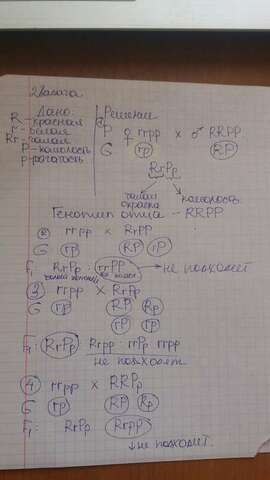 2 задача
Дано:
R – красная
r – белая
Rr – чалая
P – комолость
p – рогатость
Решение
P ♀ rrpp × ♂ RRPP
G rp RP
RrPp
чалая окраска
комолость
Генотип отца – RRPP
② rrpp × RrPP
G rp RP rP
F₁ RrPp : rrPp → не подходит
③ rrpp × RrPp
G rp RP Rp
rP rp
F₁: RrPp Rrpp : rrPp rrpp
не подходят
④ rrpp × RRPp
G rp RP Rp
F₁ RrPp Rrpp
↓ не подходит.